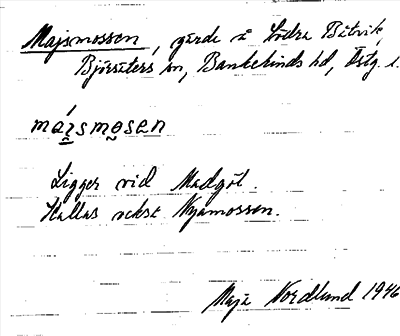 Majsmossen, gärde å Södra Båtvik,
Björsäters sn, Bankekinds hd, Östg. l.
maʹi̯smo̯sen
Ligger vid Madgöl.
Kallas också Nyamossen.
Maja Nordlund 1946